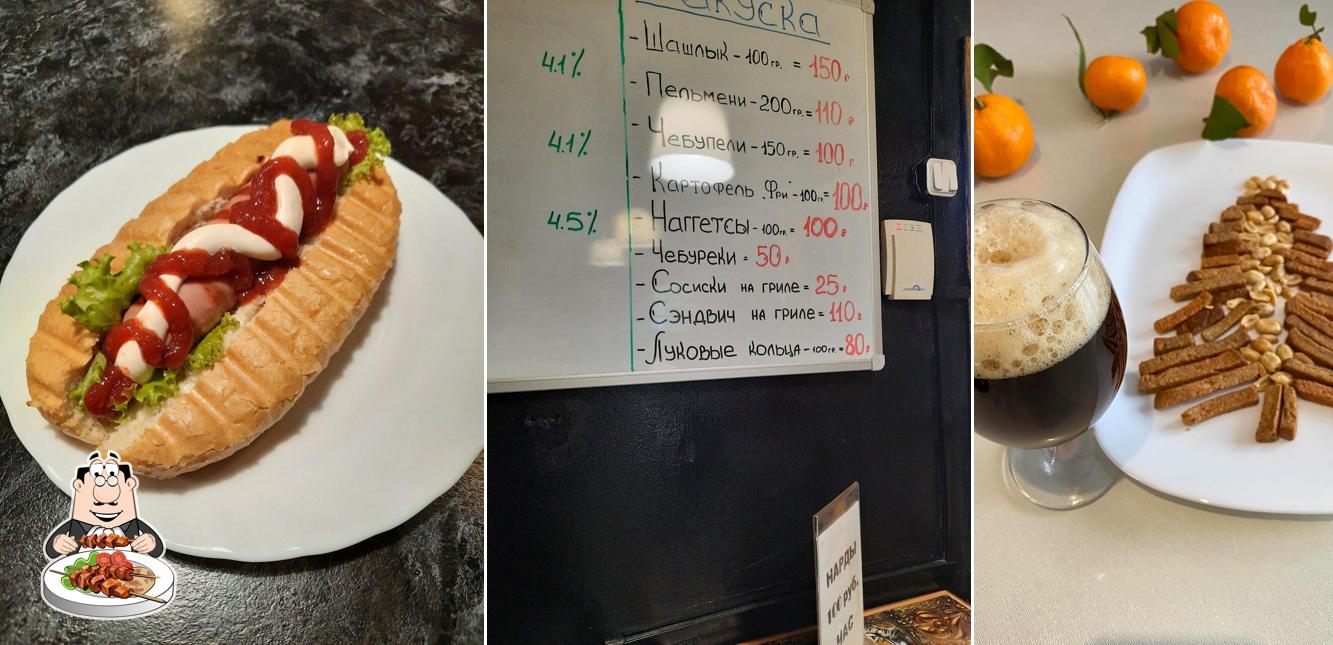 Закуска
- Шашлык - 100гр. = 150р
- Пельмени - 200гр. = 110р
- Чебупели - 150гр. = 100г.
- Картофель Фри - 100гр = 100р
- Наггетсы - 100гр. = 100р
- Чебуреки = 50р.
- Сосиски на гриле = 25р
- Сэндвич на гриле = 110р
- Луковые кольца - 100гр. = 80р
4.1%
4.1%
4.5%
НАРДЫ
100 руб.
ЧАС